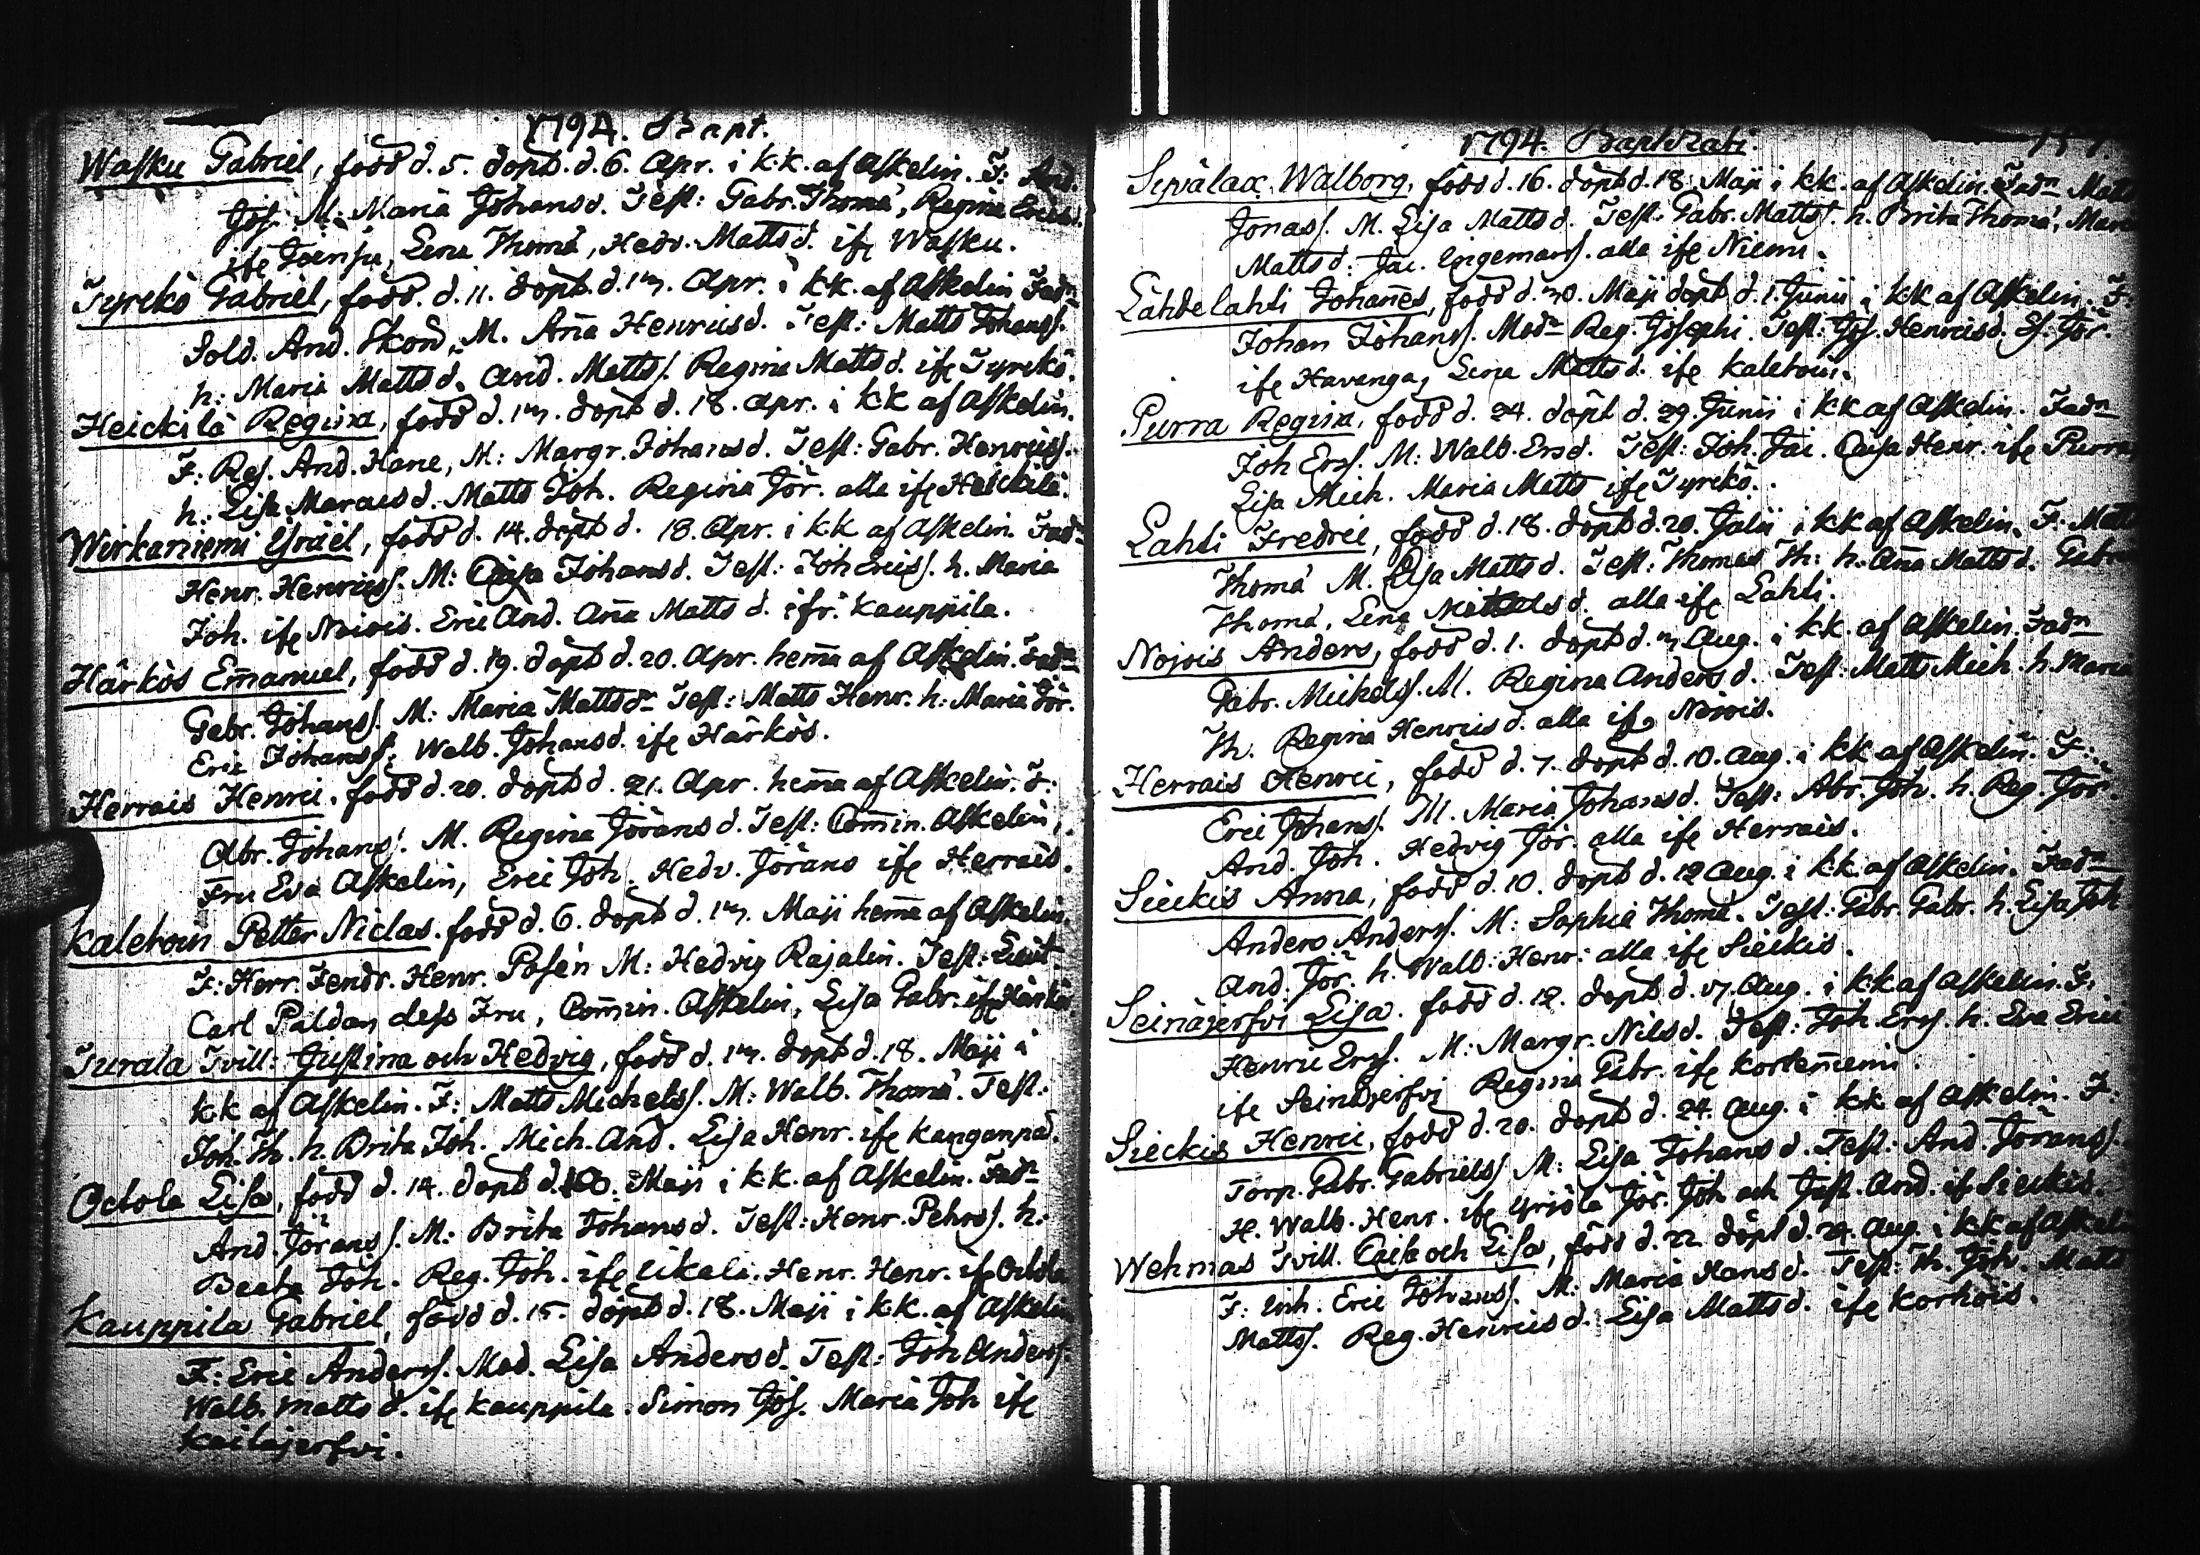 1794. Bapt.
Wasku Gabriel, född d. 5. döpt. d. 6. Apr. i k.k. af Askelin. F: And.
Jos. M: Maria Johansd. Test: Gabr. Thomæ, Regina Ericsd.
ifr Joensu, Lena Thomæ, Hedv. Matts d. ifr Wasku.
Tyrckö Gabriel, född. d. 11. döpt. d. 13. Apr. i kk. af Askelin Fadn
Sold. And. Skon, M. Aña Henricsd. Test: Matts Johanss.
h: Maria Matts d. And. Matts s. Regina Matts d. ifr Tyrckö.
Heickilä Regina, född d. 13. döpt d. 18. apr. i kk af Askelin.
F: Res. And. Hane, M: Margr. Johansd. Test: Gabr. Henricss.
h: Lisa Marcusd. Matts Joh. Regina Jör. alla ifr Heickilä.
Wirkaniemi Israël, född d. 14. döpt d. 18. Apr. i kk af Askelin. Fadn
Henr. Henricss. M: Caisa Johansd. Test: Joh Ericss. h. Maria
Joh. ifr Noiois. Eric And. Aña Matts d. ifr. Kauppila.
Härkös Em̄anuel, född d. 19. döpt d. 20. Apr. hem̄a af Askelin. Fadn
Gabr. Johanss. M: Maria Matts dr Test: Matts Henr. h: Maria Jör.
Eric Johanss. Walb. Johansd. ifr Härkös.
Herrais Henric, född d. 20. döpt d. 21. Apr. hem̄a af Askelin. F:
Abr. Johanss. M. Regina Jörans d. Test: Com̄in. Askelin,
Fru Eva Askelin, Eric Joh. Hedv. Jörans ifr Herrais.
Kaletoin Petter Niclas. född d. 6. döpt d. 13. Maji hem̄a af Askelin.
F: Herr. Fendr. Henr. Posén M: Hedvig Rajalin. Test: Lieut.
Carl Paldan dess Fru, Com̄in. Askelin, Lisa Gabr. ifr Härkös
Turala Tvill: Justina och Hedvig, född d. 13. döpt d. 18. Maji i
kk af Askelin. F: Matts Michelss. M: Walb. Thomæ. Test:
Joh. Th. h. Brita Joh. Mich. And. Lisa Henr. ifr Kanganpää.
Octola Lisa, född d. 14. döpt d. Maji i k.k. af Askelin. Fadn
And. Jöranss. M: Brita Johansd. Test: Henr. Pehrss. h:
Beata Joh. Reg. Joh. ifr Likala. Henr. Henr. ifr Octola
Kauppila Gabriel, född d. 15. döpt d. 18. Maji i k.k. af Askelin
F: Eric Anderss. Mod. Lisa Andersd. Test: Joh Anderss.
Walb. Matts d. ifr Kauppila. Simon Jos. Maria Joh ifr
Kailajerfvi.
1794. Baptizati.
Sipälax, Walborg, född d. 16. döpt d. 18. Maji i kk. af Askelin. Fadn Matts
Jonass. M. Lisa Matts d. Test: Gabr. Matts s. h. Brita Thomæ, Maria
Matts d: Jac. Ingemarss. alla ifr Niemi.
Lähdelahti Johan̄es, född d. 30. Maji döpt d. 1. Junii i kk af Askelin. F:
Johan Johanss. Modn Reg. Josephi. Test: Jos. Henricsd. Jör.
ifr Havanga, Lena Matts d. ifr Kaletoin.
Purra Regina, född d. 24. döpt d. 29. Junii i kk af Askelin. Fadn
Joh Erss. M: Walb. Ersd. Test: Joh. Jac. Caisa Henr. ifr Purra
Lisa Mich. Maria Matts ifr Tyrckö.
Lahti Fredric, född d. 18. döpt d. 20. Julii i kk af Askelin. F. Matts
Thomæ M. Lisa Matts d. Test: Thomas Th: h: Aña Matts d. Gabr
Thomæ, Lena d. alla ifr Lahti.
Nojois Anders, född d. 1. döpt d. 3 Aug. i k.k. af Askelin. Fadn
Gabr. Mickelss. M. Regina Anders d. Test: Matts Mich. h. Maria
Th. Regina Henricsd. alla ifr Noiois.
Herrais Henric, född d. 7. döpt d. 10. Aug. i kk af Askelin. F:
Eric Johanss. M. Maria Johansd. Test: Abr. Joh. h. Reg. Jör.
And. Joh. Hedvig Jör. alla ifr Herrais.
Sieckis Anna, född d. 10. döpt d. 12 Aug. i kk. af Askelin. Fadn
Anders Anderss. M: Sophia Thomæ. Test: Gabr. Gabr. h. Lisa Joh
And. Jör. h. Walb: Henr: alla ifr Sieckis.
Seinäjerfvi Lisa. född d. 12. döpt d. 17. Aug. i kk af Askelin. F.
Henric Erss. M: Margr. Nilsd. Test: Joh. Erss. h. Eva Erici
ifr Seinäjerfvi Regina Gabr. ifr Korteniemi.
Sieckis Henric, född d. 20. döpt d. 24. Aug. i kk af Askelin. F:
Torp. Gabr. Gabrielss M: Lisa Johans d. Test: And. Jöranss.
H. Walb. Henr. ifr Yrjölä Jör. Joh och Just. And. ifr Sieckis.
Wehmas Tvill. Caisa och Lisa, född d. 22. döpt d. 24. Aug. i kk af Askelin
F: Inh. Eric Johanss. M: Maria Hansd. Test: Th. Joh. Matts
Matts s. Reg. Henricsd. Lisa Matts d. ifr Korhois.